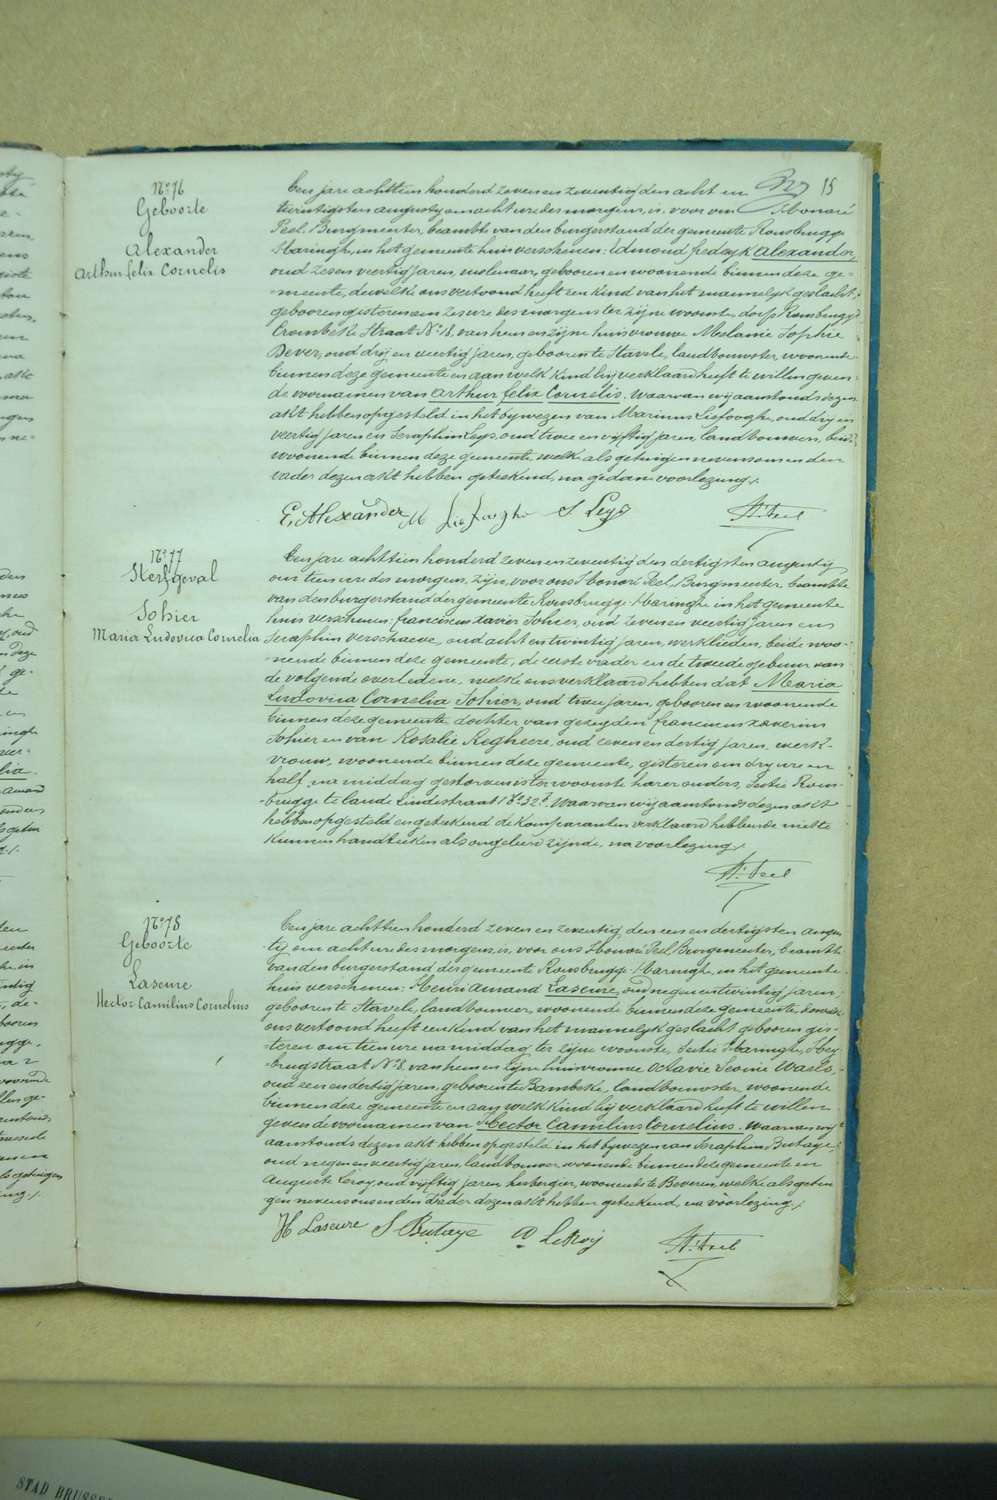 15
N° 76
Geboorte
Alexander
Arthur felix Cornelis
Een jare achttien honderd zeven en zeventig den acht en
twintigsten augusty om acht ure des morgens, is, voor ons Honoré
Peel, Burgmeester, beambte van den burgerstand der gemeente Rousbrugge
Haringhe, in het gemeente huis verschenen: Edmond fredryk Alexander,
oud zes en veertig jaren, molenaar, gebooren en woonende binnen deze ge-
meente, dewelke ons vertoond heeft een kind van het mannelyk geslacht,
gebooren gisteren om zes ure des morgens ter zijne woonste, dorp Rousbrugge
Crombeke Straat N° 18, van hem en zijne huisvrouwe Melanie Sophie
Dever, oud drij en veertig jaren, gebooren te Stavele, landbouwster, woonende
binnen deze gemeente en aan welk kind hij verklaard heeft te willen geven
de voornamen van Arthur felix Cornelis. Waarvan wij aanstonds dezen
akt hebben opgesteld in het bywezen van Marinus Liefooghe, oud drij en
veertig jaren en Seraphin Leys, oud twee en vijftig jaren, landbouwers, beide
woonende binnen deze gemeente, welke als getuigen nevens ons en den
vader dezen akt hebben geteekend, na gedane voorlezing.
E. Alexander M Liefooghe S Leys H. Peel
N° 77
Sterfgeval
Sohier
Maria Ludovica Cornelia
Een jare achttien honderd zeven en zeventig den dertigsten augusty
om tien ure des morgens, zijn, voor ons Honoré Peel, Burgmeester, beambte
van den burgerstand der gemeente Rousbrugge Haringhe in het gemeente
huis verschenen: franciscus Xavier Sohier, oud zeven en veertig jaren en
Seraphin verschaeve, oud acht en twintig jaren, werklieden, beide woo-
nende binnen deze gemeente, de eerste vader en de tweede gebuur van
de volgende overledene, welke ons verklaard hebben dat Maria
Ludovica Cornelia Sohier, oud twee jaren, gebooren en woonende
binnen deze gemeente dochter van gezeyden franciscus xaverius
Sohier en van Rosalie Regheere, oud zeven en dertig jaren, werk-
vrouw, woonende binnen deze gemeente, gisteren om dry ure en
half na middag gestorven is ter woonste harer ouders, Sectie Rous-
brugge te lande Lindestraat
Waarvan wij aanstonds dezen akt
hebben opgesteld en geteekend de komparanten verklaard hebbende niet te
kunnen handteeken als ongeleerd zijnde, na voorlezing.
H. Peel
N° 78
Geboorte
Laseure
Hector Camilius Cornelius
Een jare achttien honderd zeven en zeventig den een en dertigsten augus-
ty om acht ure des morgens, is, voor ons Honoré Peel, Burgmeester, beambte
van den burgerstand der gemeente Rousbrugge Haringhe, in het gemeente
huis verschenen: Henri Amand Laseure, oud negen en twintig jaren,
gebooren te Stavele, landbouwer, woonende binnen deze gemeente dewelke
ons vertoond heeft een kind van het mannelyk geslacht gebooren gis-
teren om tien ure na middag ter zijne woonste, Sectie Haringhe, Hey-
brugstraat N° 8, van hem en zijne huisvrouwe Octavie Leonie Waels,
oud een en dertig jaren, gebooren te Bambeke, landbouwster, woonende
binnen deze gemeente en aan welk kind hij verklaard heeft te willen
geven de voornamen van Hector Camilius Cornelius. Waarvan wij
aanstonds dezen akt hebben opgesteld in het bywezen van Seraphin Butaye,
oud negen en veertig jaren, landbouwer, woonende binnen deze gemeente en
Auguste Leroy, oud vijftig jaren herbergier, woonende te Beveren, welke als getui
gen nevens ons en den vader dezen akt hebben geteekend, na voorlezing.
H Laseure S Butaye A LeRoij H. Peel
STAD BRUSSE